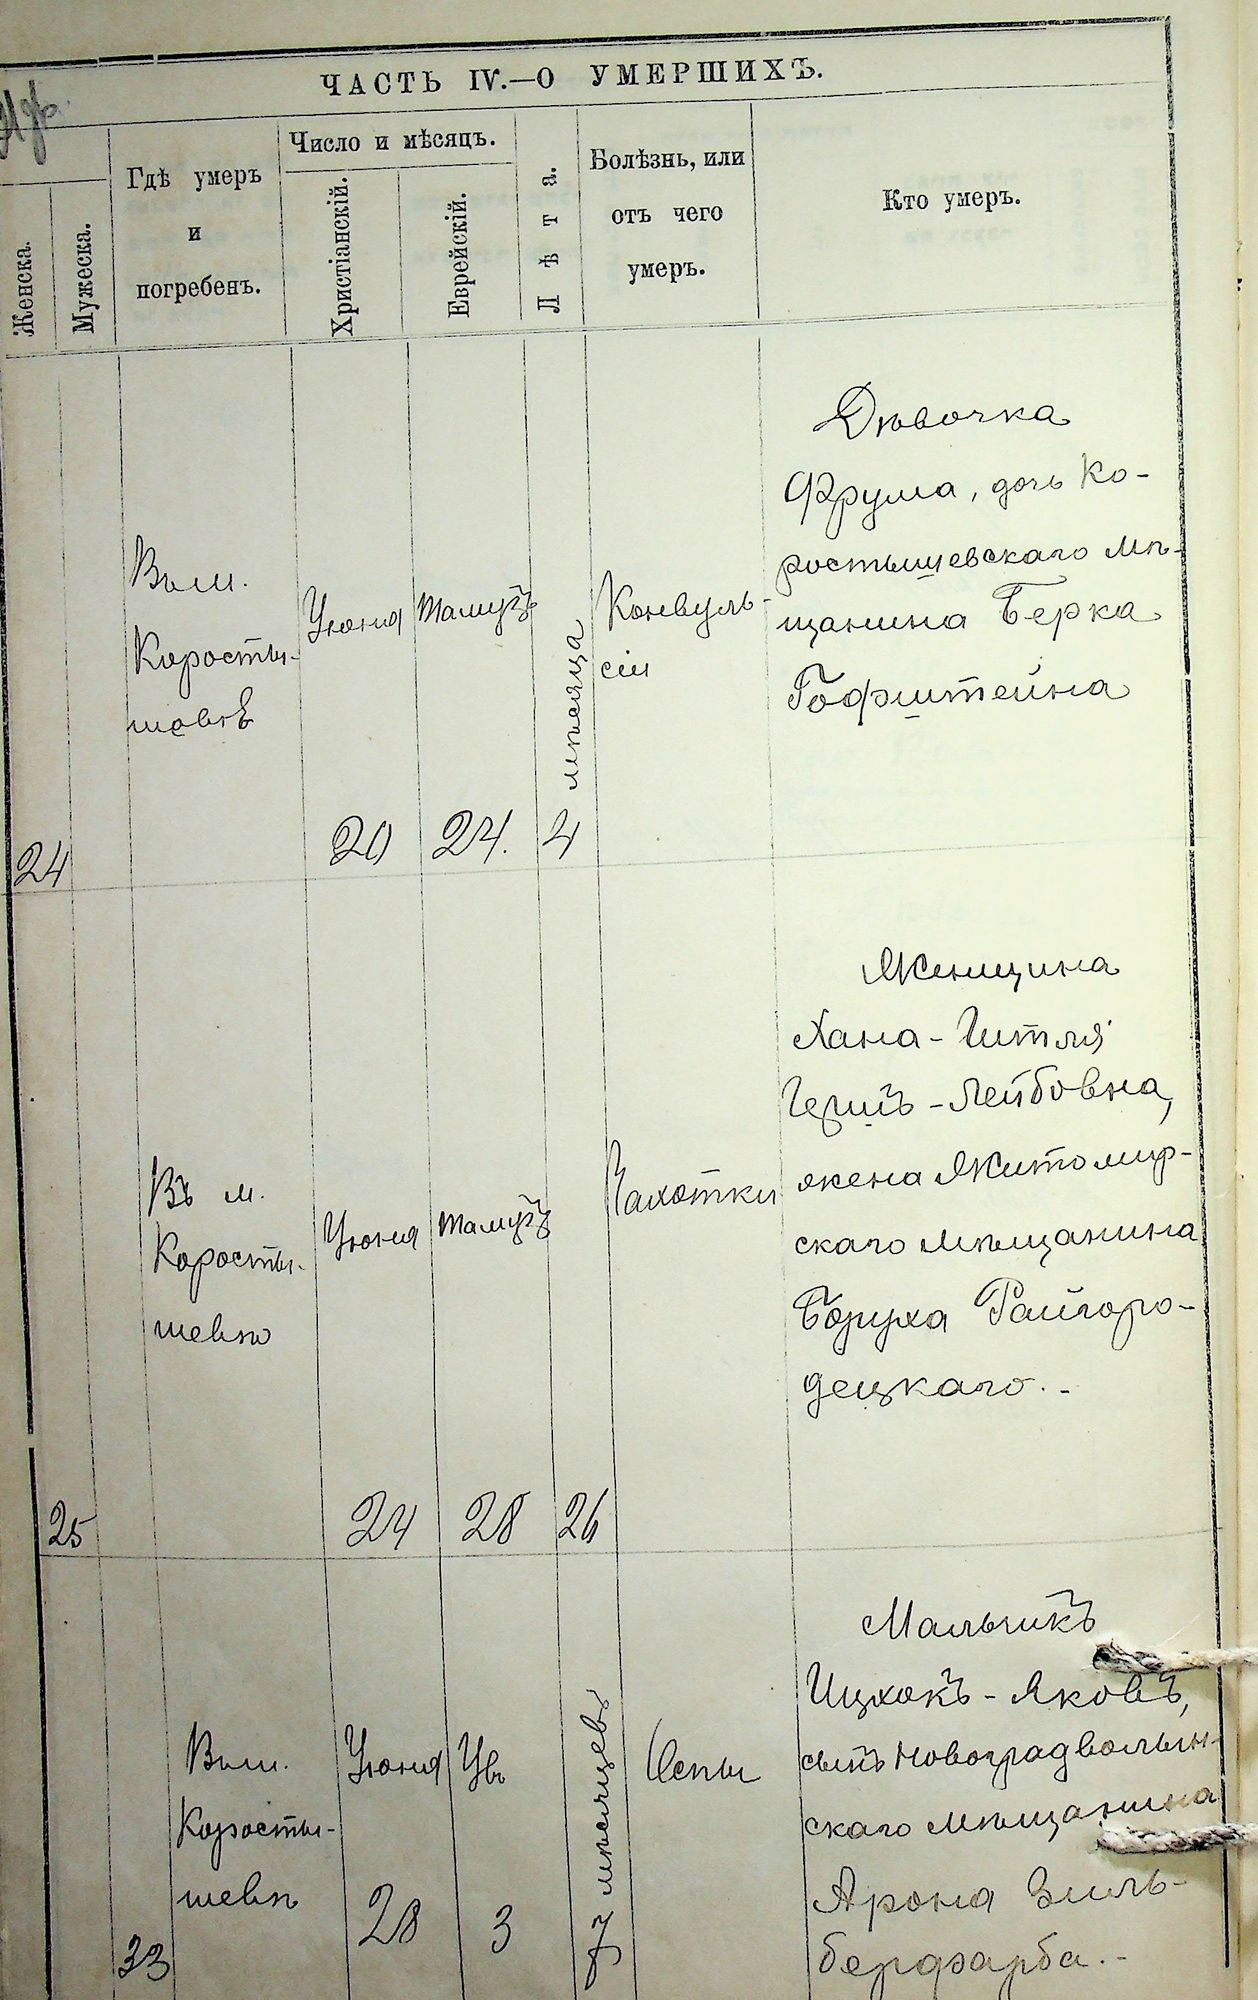 ЧАСТЬ IV.—О УМЕРШИХЪ.
Женска.
Мужеска.
Гдѣ умеръ
и
погребенъ.
Число и мѣсяцъ.
Христіанскій.
Еврейскій.
Лѣта.
Болѣзнь, или
отъ чего
умеръ.
Кто умеръ.
24
Въ м.
Коросты-
шевѣ
Іюня
20
Тамузъ
24.
4 мѣсяца
Конвуль-
сіи
Дѣвочка
Фрума, дочь Ко-
ростышевскаго мѣ-
щанина Берка
Гофштейна
25
Въ м.
Коросты-
шевѣ
Іюня
24
Тамузъ
28
26
Чахотки
Женщина
Хана-Гитля
Герш̅ъ-Лейбовна,
жена Житомир-
скаго мѣщанина
Боруха Райгоро-
децкаго.-
33
Въ м.
Коросты-
шевѣ
Іюня
28
Увъ
3
7 мѣсяцевъ
Оспы
Мальчикъ
Ицхокъ-Яковъ,
сынъ Новоградволын-
скаго мѣщанина
Арона Зиль-
берфарба.-